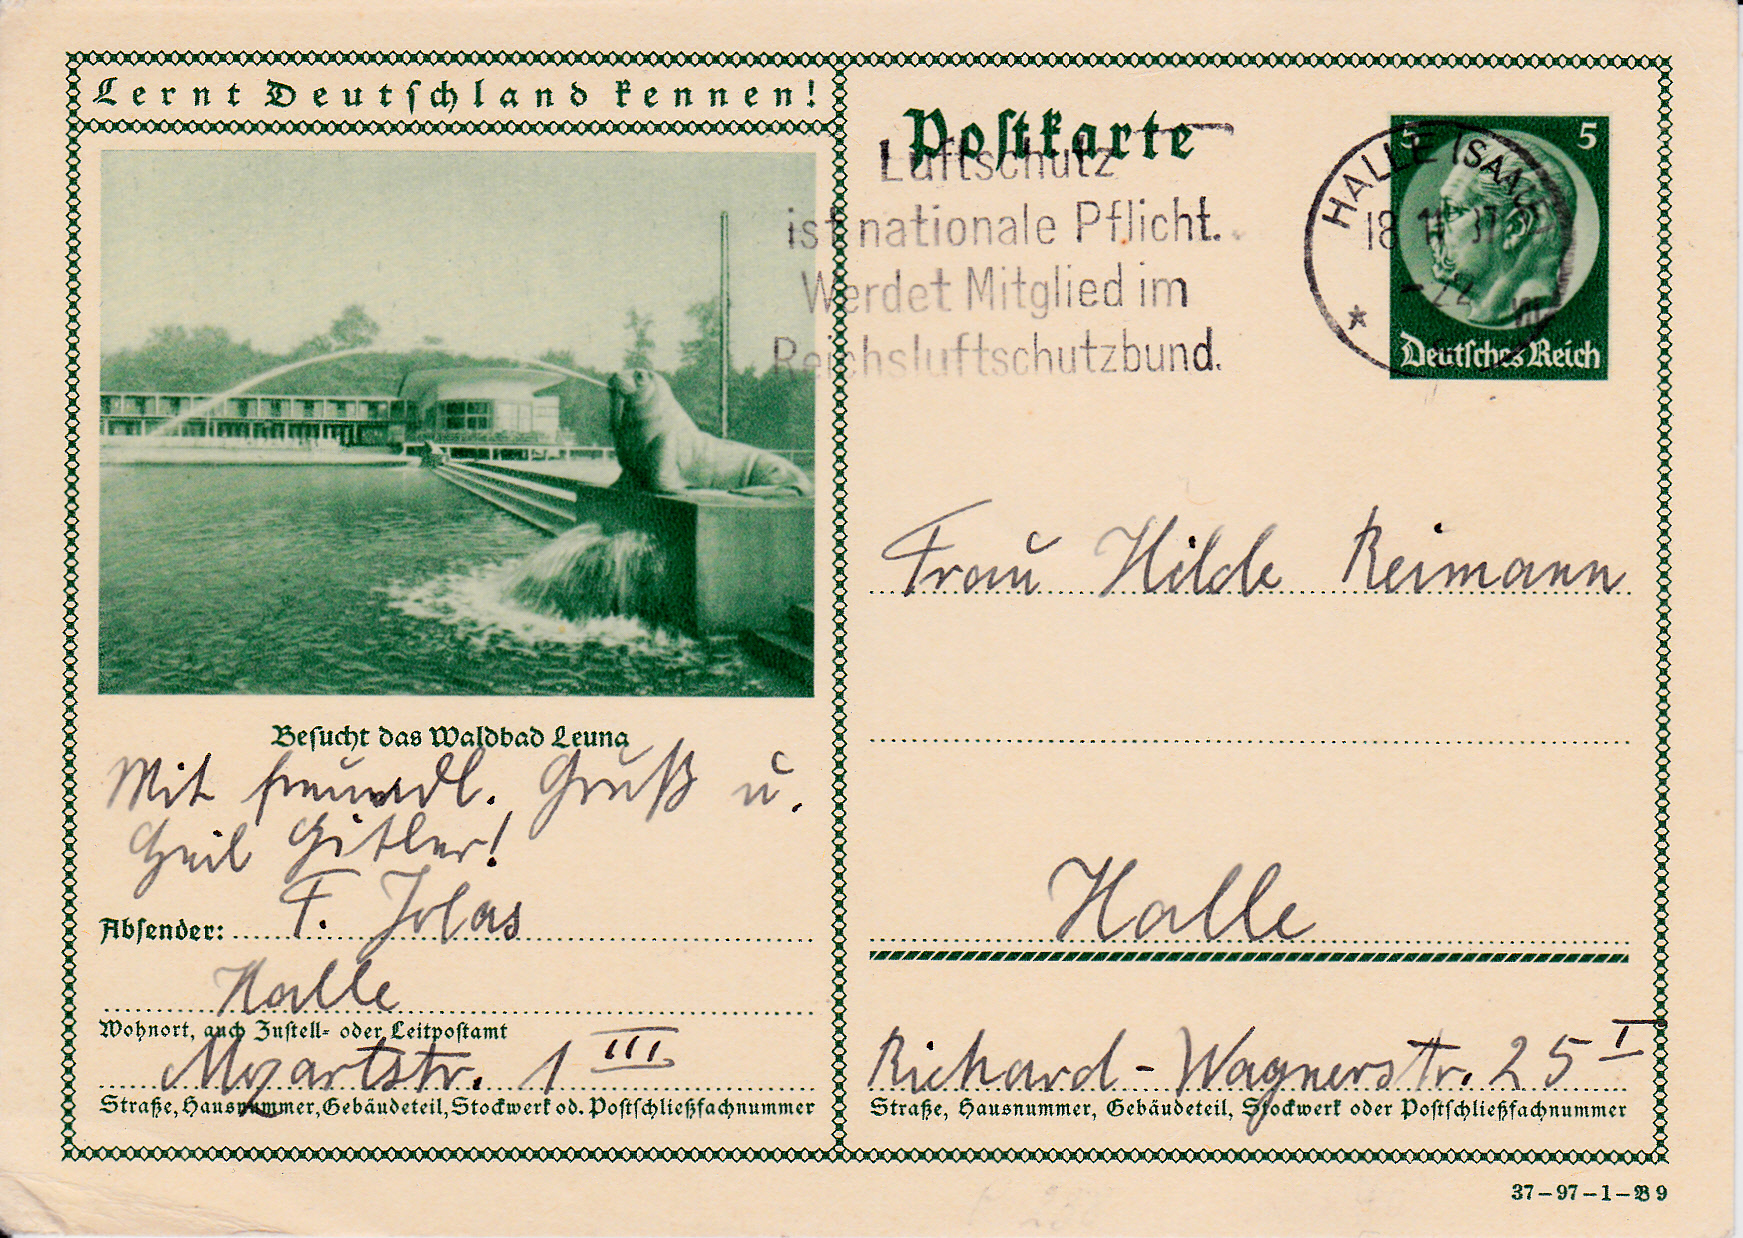 Lernt Deutschland kennen!
Besucht das Waldbad Leuna
Mit freundl. Gruß u.
Heil Hitler!
Absender: F. Jolas
Halle
Wohnort, auch Zustell- oder Leitpostamt
Mozartstr. 1 III
Straße, Hausnummer, Gebäudeteil, Stockwerk od. Postschließfachnummer
Postkarte
Luftschutz
ist nationale Pflicht.
Werdet Mitglied im
Reichsluftschutzbund.
HALLE (SAALE)
18
37
5 5
Deutsches Reich
Frau Hilde Reimann
Halle
Richard-Wagnerstr. 25 I
Straße, Hausnummer, Gebäudeteil, Stockwerk oder Postschließfachnummer
37-97-1-B9